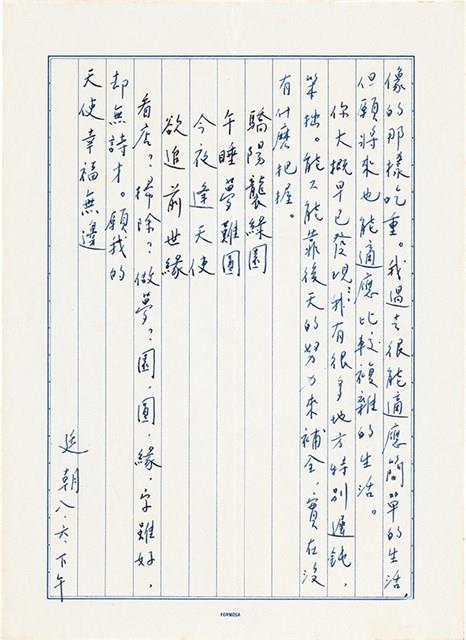 像的那樣吃重。我過去很能適應簡單的生活，
但願將來也能適應比較複雜的生活。
你大概早已發現：我有很多地方特別遲鈍，
笨拙。能不能靠後天的努力來補全，實在沒
有什麼把握。
驕陽襲綠園
午睡夢難圓
今夜逢天使
欲追前世緣
看店？掃除？做夢？園，圓，緣，字雖好，
却無詩才。願我的
天使幸福無邊
廷朝八.六.下午
FORMOSA